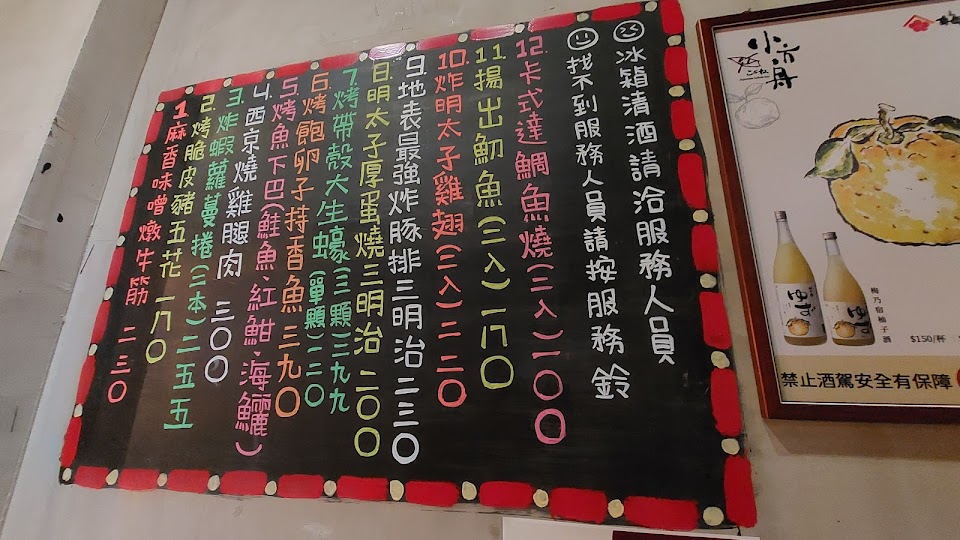 1.麻香味噌燉牛筋 二三〇
2.烤脆皮豬五花 一八〇
3.炸蝦蘿蔓捲(三本)二五五
4.西京燒雞腿肉 三〇〇
5.烤魚下巴鮭魚、紅魽、海鱺)
6.烤飽卵子持香魚 三九〇
7.烤帶殼大生蠔(三顆)二九九
(單顆)一二〇
8.明太子厚蛋燒三明治 二〇〇
9.地表最強炸豚排三明治 二三〇
10.炸明太子雞翅(三入)二二〇
11.揚出魛魚(三入)一八〇
12.卡式達鯛魚燒(二入)一〇〇
找不到服務人員請按服務鈴
冰箱清酒請洽服務人員
ゆず
ゆず
梅乃宿柚子酒
$150/杯
禁止酒駕安全有保障